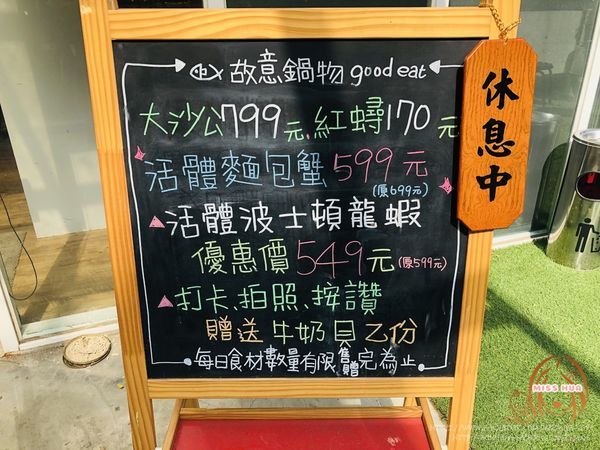 故意鍋物 good eat
大沙公799元,紅蟳170元
活體麵包蟹599元
(原699元)
活體波士頓龍蝦
優惠價549元(原599元)
打卡、拍照、按讚
贈送牛奶貝乙份
每日食材數量有限售贈完為止
休息中
MISS HUA